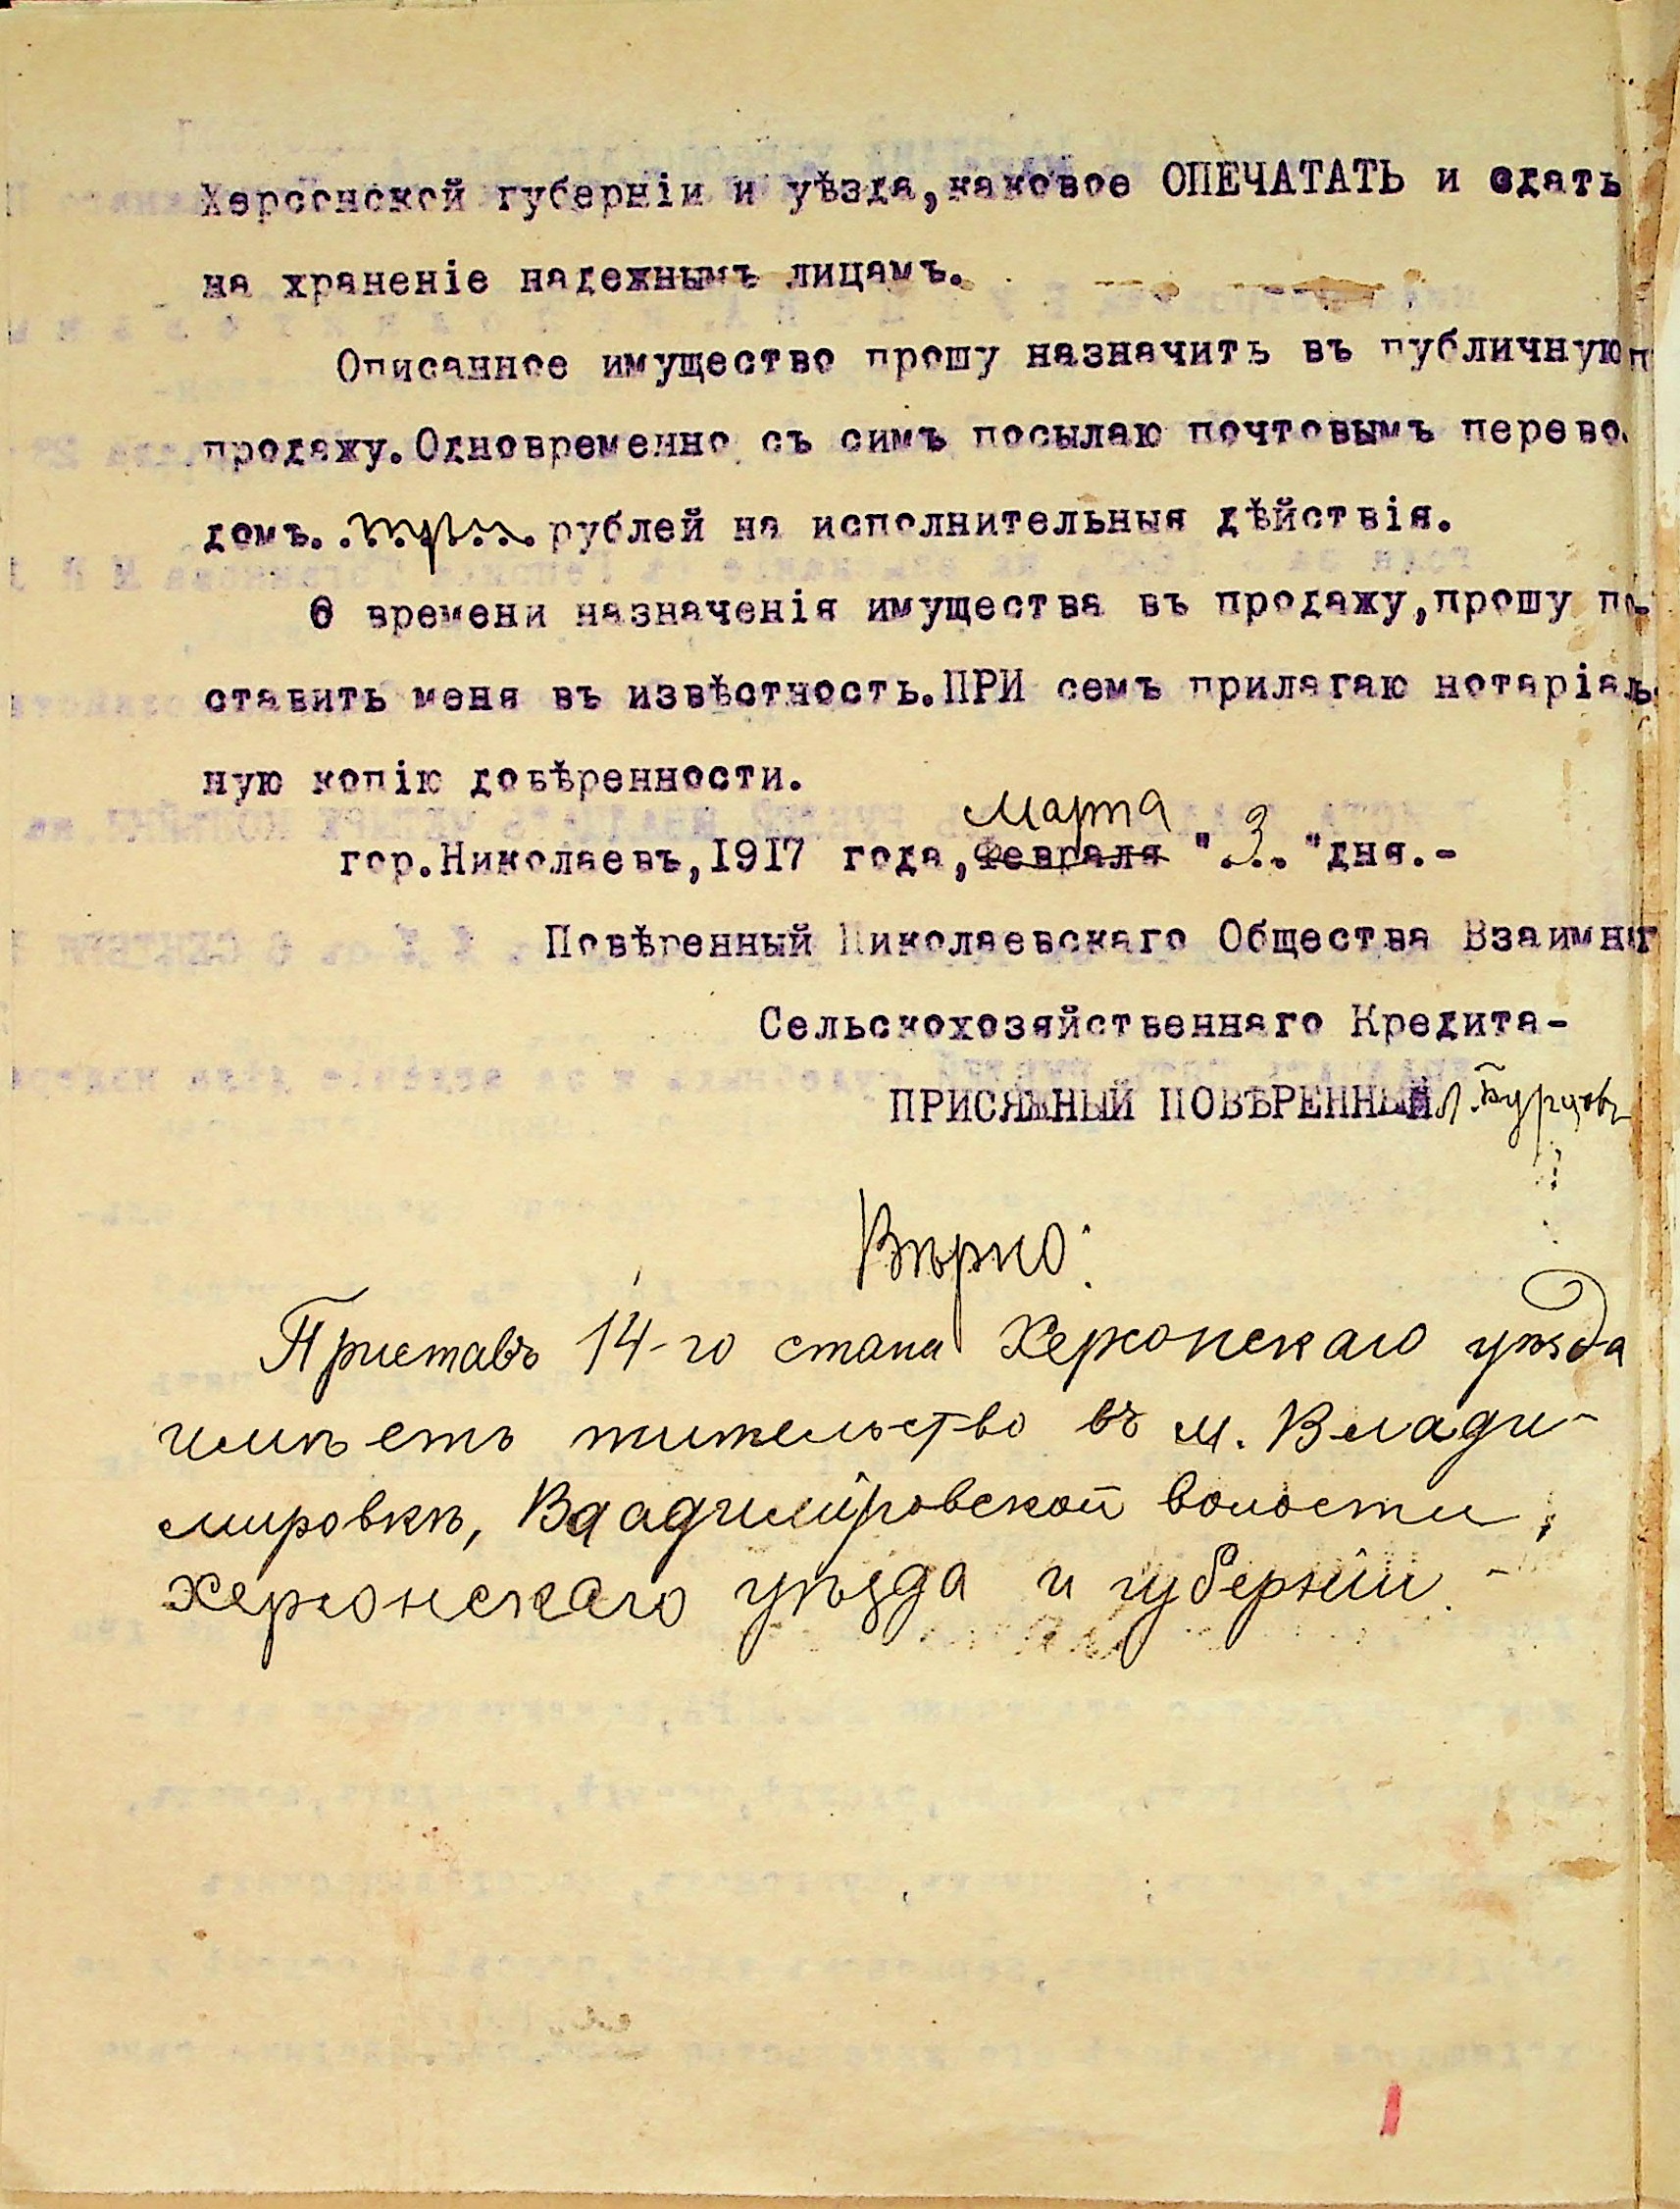 Херсонской губерніи и уѣзда,каковое ОПЕЧАТАТЬ и сдать
на храненіе надежнымъ лицамъ.
Описанное имущество прошу назначить въ публичную п
продажу.Одновременно съ симъ посылаю почтовымъ перево
домъ. три рублей на исполнительныя дѣйствія.
О времени назначенія имущества въ продажу,прошу по
ставить меня въ извѣстность.ПРИ семъ прилагаю нотаріаль
ную копію довѣренности.
Марта
гор.Николаевъ,1917 года,Февраля "3" дня.-
Повѣренный Николаевскаго Общества Взаимног
Сельскохозяйственнаго Кредита-
ПРИСЯЖНЫЙ ПОВѢРЕННЫЙ Л. Бурцовъ
Вѣрно:
Приставъ 14-го стана Херсонскаго уѣзда
имѣетъ жительство въ м. Влади-
мировкѣ, Владимировской волости,
Херсонскаго уѣзда и губерніи.-